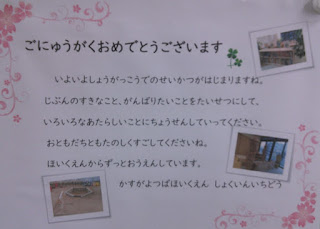 ごにゅうがくおめでとうございます
いよいよしょうがっこうでのせいかつがはじまりますね。
じぶんのすきなこと、がんばりたいことをたいせつにして、
いろいろなあたらしいことにちょうせんしていってください。
おともだちともたのしくすごしてくださいね。
ほいくえんからずっとおうえんしています。
かすがよつばほいくえん　しょくいんいちどう